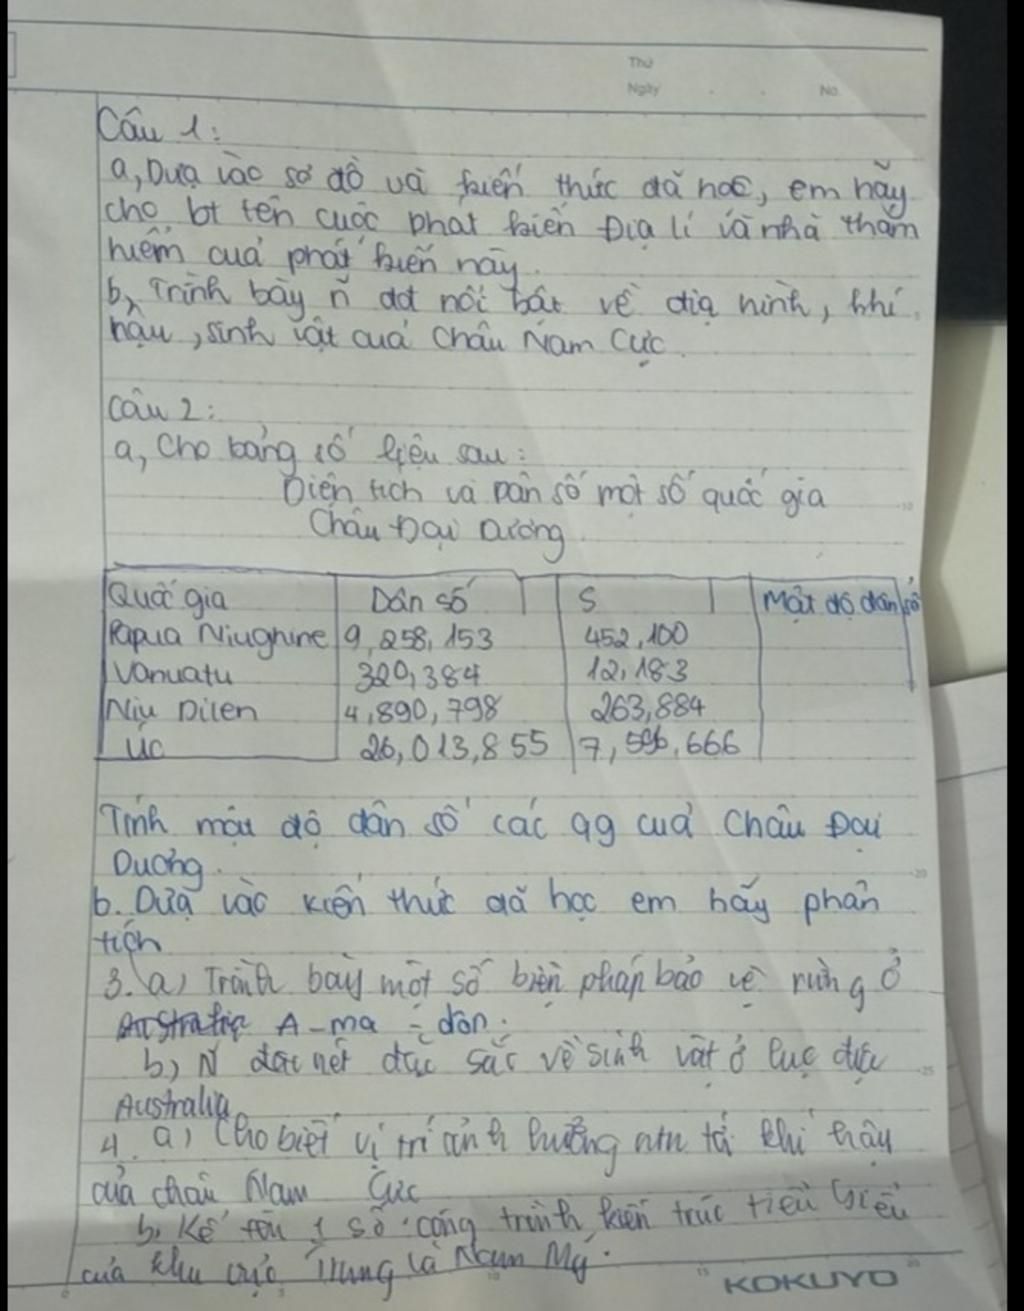 Thứ
Ngày . . No.
Câu 1:
a, Dựa vào sơ đồ và kiến thức đã học, em hãy
cho bt tên cuộc phát kiến Địa lí và nhà thám
hiểm cuả phát kiến này.
b, Trình bày ñ đđ nổi bật về địa hình, khí
hậu, sinh vật cuả Châu Nam Cực.
Câu 2:
a, Cho bảng số liệu sau:
Diện tích và Dân số một số quốc gia
Châu Đại Dương
Quốc gia Dân số S Mật độ dân số
Papua Niughine 9,258,153 452,100
Vanuatu 320,384 12,183
Niu Dilen 4,890,798 263,884
Úc 26,013,855 7,596,666
Tính mật độ dân số các qg cuả Châu Đại
Dương.
b. Dựa vào kiến thức đã học em hãy phân
tích
3. a) Trình bày một số biện pháp bảo vệ rừng ở
A-ma-dôn.
b) Ñ đặc nét đặc sắc về sinh vật ở lục địa
Australia
4. a) Cho biết vị trí ảnh hưởng ntn tới khí hậu
của châu Nam Cực
b, Kể tên 1 số công trình kiến trúc tiêu biểu
của khu vực Trung và Nam Mỹ.
KOKUYO